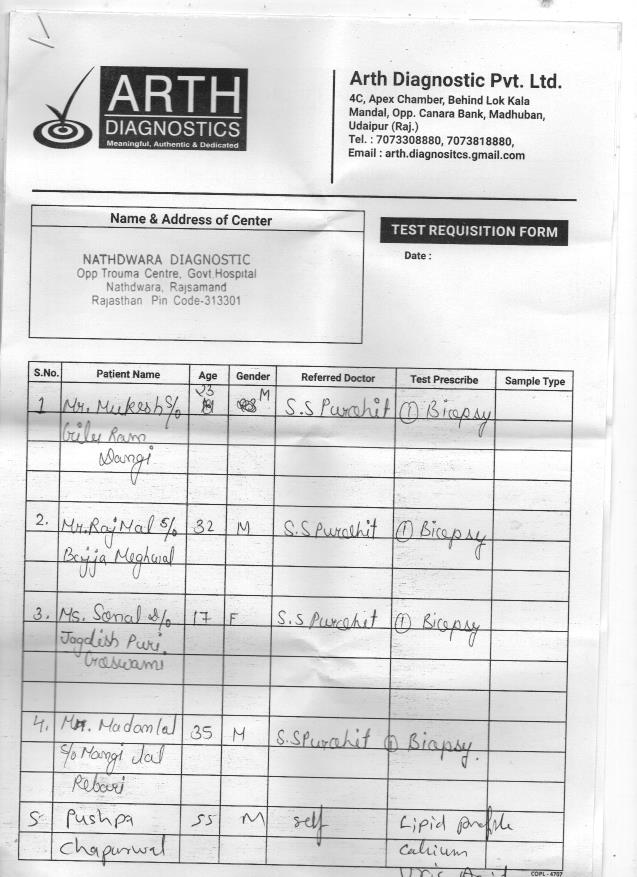 ARTH
DIAGNOSTICS
Meaningful, Authentic & Dedicated
Arth Diagnostic Pvt. Ltd.
4C, Apex Chamber, Behind Lok Kala
Mandal, Opp. Canara Bank, Madhuban,
Udaipur (Raj.)
Tel. : 7073308880, 7073818880,
Email : arth.diagnositcs.gmail.com
Name & Address of Center
NATHDWARA DIAGNOSTIC
Opp Trouma Centre, Govt.Hospital
Nathdwara, Rajsamand
Rajasthan Pin Code-313301
TEST REQUISITION FORM
Date :
S.No. Patient Name Age Gender Referred Doctor Test Prescribe Sample Type
1 Mr. Mukesh S/o 23 M S.S Purohit ① Biopsy
Ram
Dangi
2. Mr. Raj Mal S/o 32 M S.S Purohit ① Biopsy
Bajja Meghwal
3. Ms. Sonal D/o 17 F S.S Purohit ① Biopsy
Jagdish Puri
Goswami
4. Mr. Madanlal 35 M S.S Purohit ① Biopsy.
S/o Mangi Lal
Rebari
5 Pushpa 55 M self Lipid profile
Chaparwal Calcium
Uric Acid
COPL - 4707